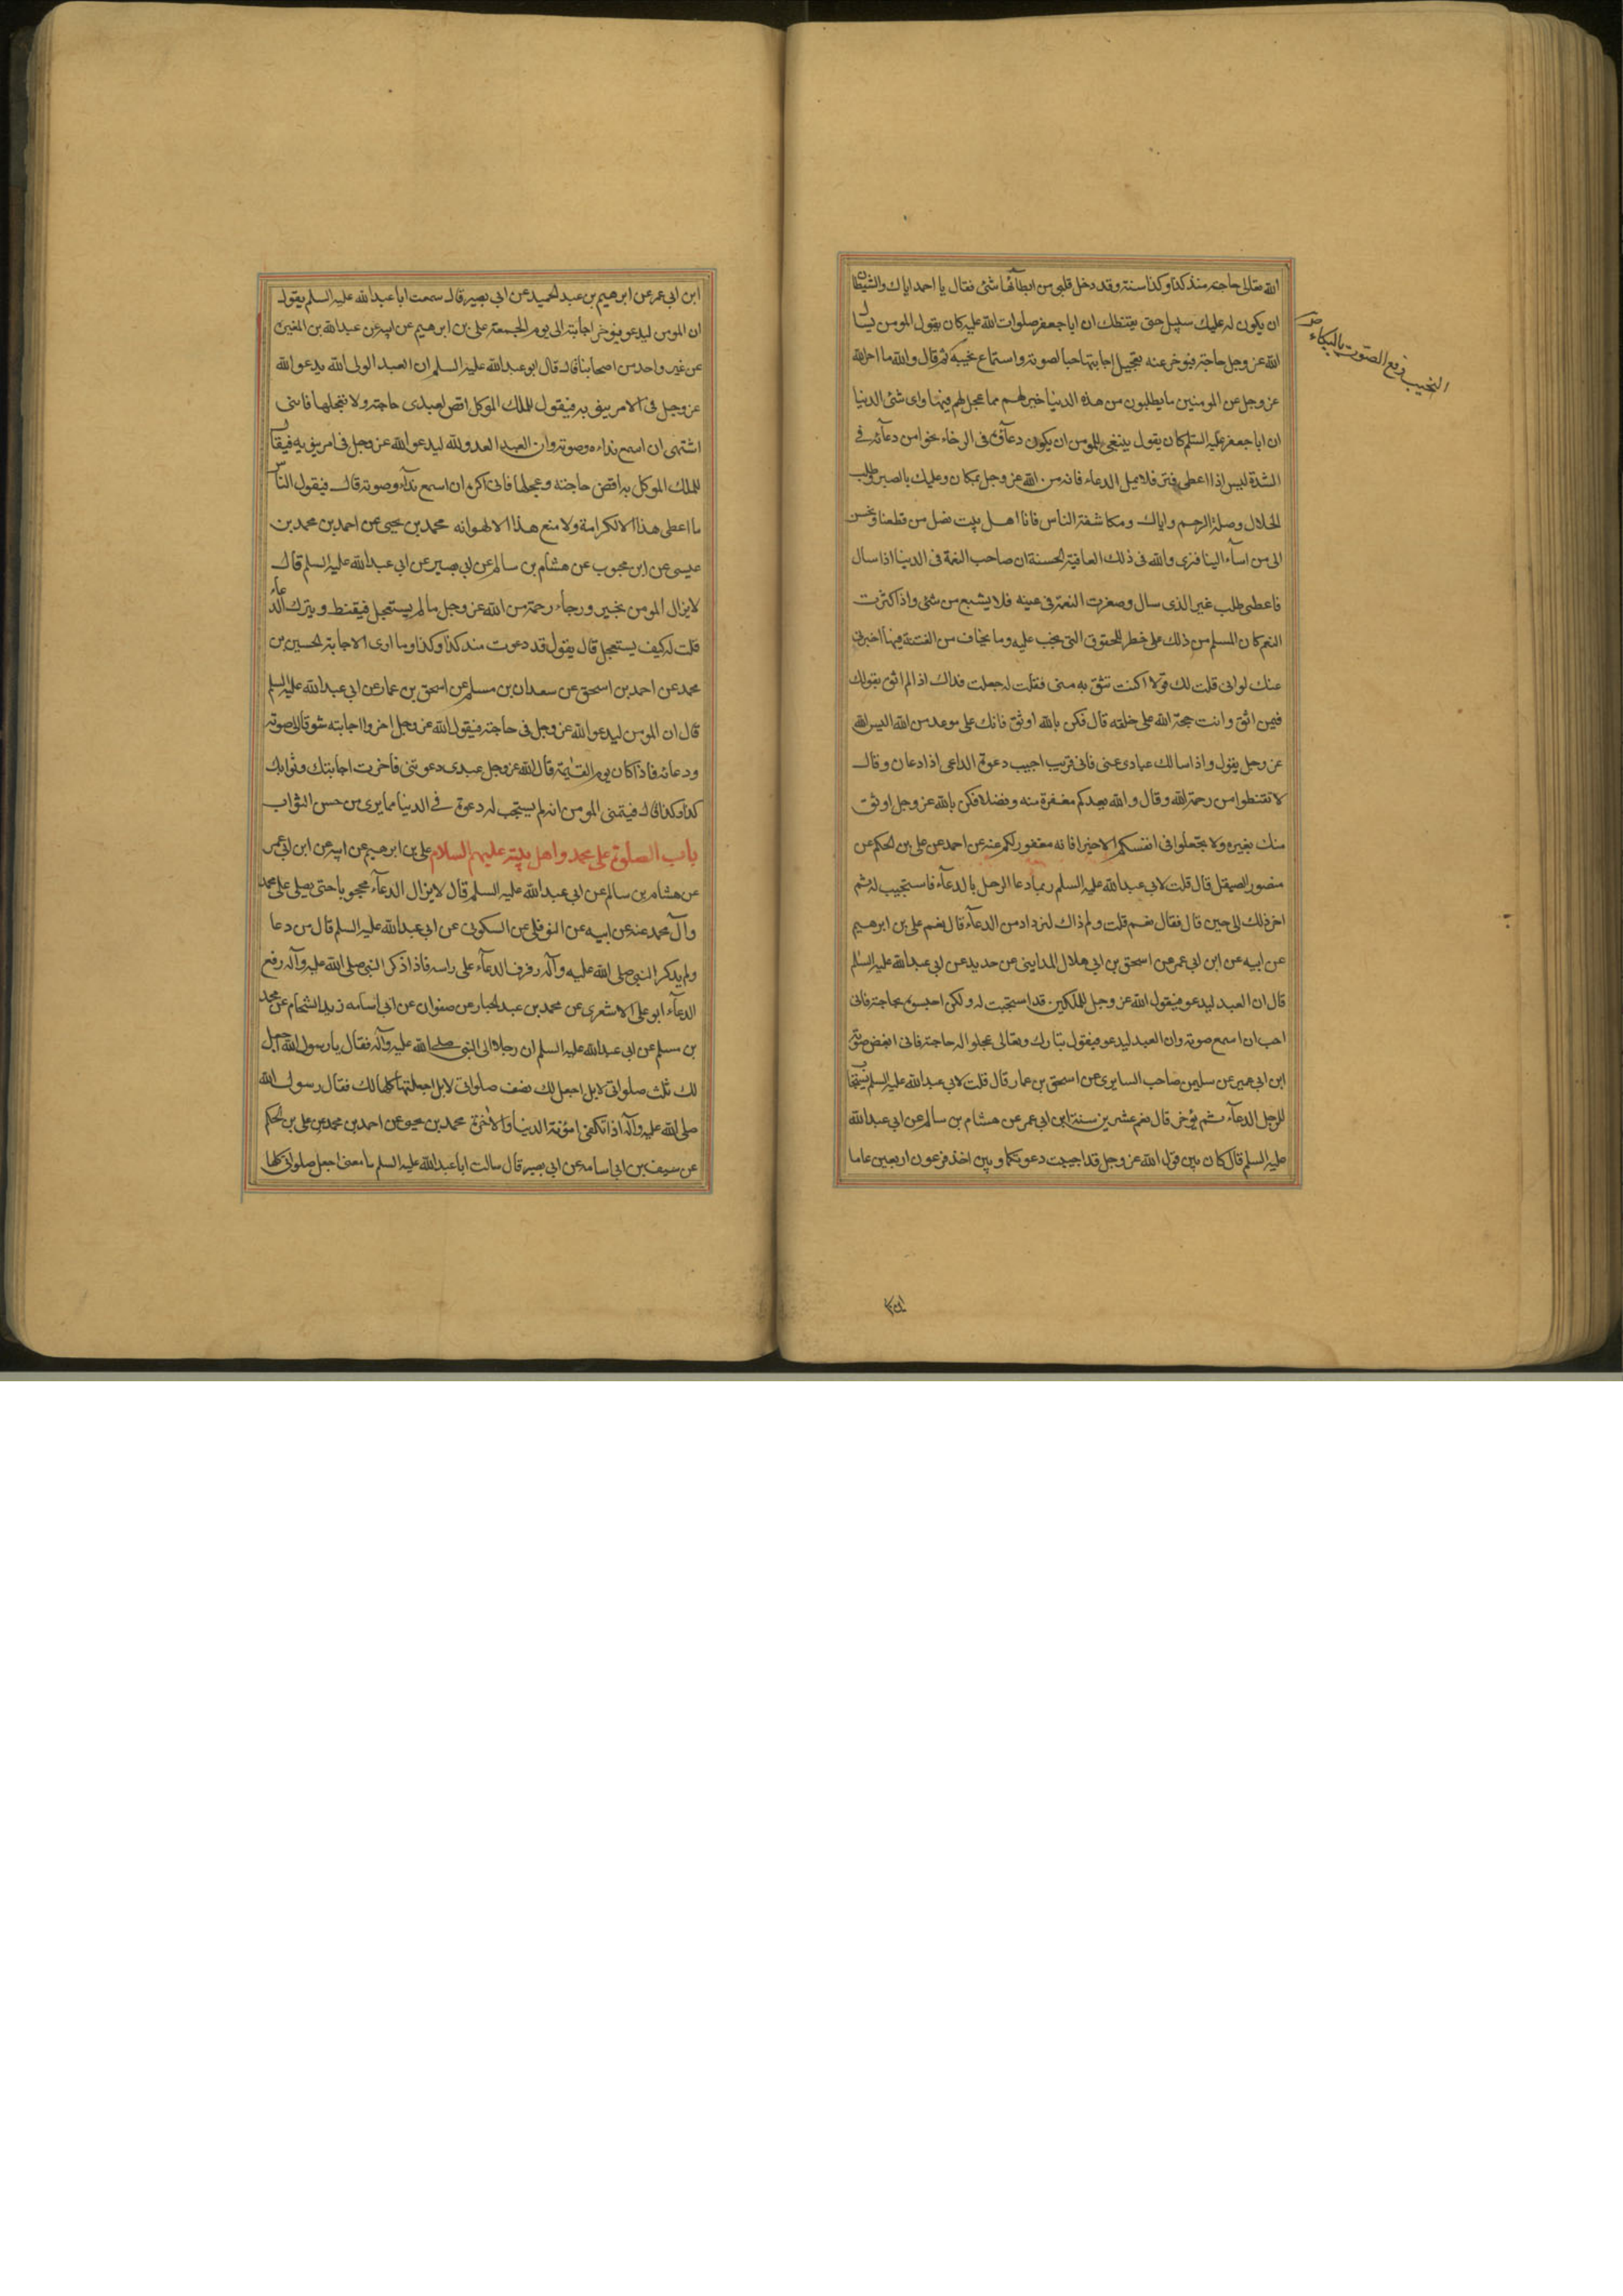 الله تعالى حاجة منذ كذا وكذا سنة وقد دخل قلبى من ابطائها شئ فقال يا احمد اياك والشيطان
ان يكون له عليك سبيل حتى يقنطك ان ابا جعفر صلوات الله عليه كان يقول المومن يسال
الله عز وجل حاجة فيوخر عنه تعجيل اجابتها حبا لصوته واستماع نحيبه ثم قال والله ما اخر الله
عز وجل عن المومنين ما يطلبون من هذه الدنيا خير لهم مما عجل لهم فيها واى شئ الدنيا
ان ابا جعفر عليه السلم كان يقول ينبغى للمومن ان يكون دعآؤه فى الرخاء نحوا من دعآئه في
الشدة ليس اذا اعطى فتر فلا تمل الدعاء فانه من الله عز وجل بمكان وعليك بالصبر وطلب
الحلال وصلة الرحم واياك ومكاشفة الناس فانا اهل بيت نصل من قطعنا ونحسن
الى من اسآء الينا فنرى والله فى ذلك العاقبة الحسنة ان صاحب النعمة فى الدنيا اذا سال
فاعطى طلب غير الذى سال وصغرت النعمة فى عينه فلا يشبع من شئ واذا كثرت
النعم كان المسلم من ذلك على خطر للحقوق التى تجب عليه وما يخاف من الفتنة فيها اخبرنى
عنك لو انى قلت لك قولا اكنت تثق به منى فقلت له جعلت فداك اذا لم اثق بقولك
فبمن اثق وانت حجة الله على خلقه قال فكن بالله اوثق فانك على موعد من الله اليس الله
عز وجل يقول واذا سالك عبادى عنى فانى قريب اجيب دعوة الداعى اذا دعان وقال
لا تقنطوا من رحمة الله وقال والله يعدكم مغفرة منه وفضلا فكن بالله عز وجل اوثق
منك بغيره ولا تجعلوا فى انفسكم الا خيرا فانه مغفور لكم عنه عن احمد عن على بن الحكم عن
منصور الصيقل قال قلت لابى عبد الله عليه السلم ربما دعا الرجل بالدعآء فاستجيب له ثم
اخر ذلك الى حين قال فقال نعم قلت ولم ذاك ليزداد من الدعآء قال نعم على بن ابرهيم
عن ابيه عن ابن ابى عمير عن اسحق بن ابى هلال المداينى عن حديد عن ابى عبد الله عليه السلم
قال ان العبد ليدعو فيقول الله عز وجل للملكين قد استجبت له ولكن احبسوه بحاجته فانى
احب ان اسمع صوته وان العبد ليدعو فيقول تبارك وتعالى عجلوا له حاجته فانى ابغض صوته
ابن ابى عمير عن سليمن صاحب السابرى عن اسحق بن عمار قال قلت لابى عبد الله عليه السلم يستجاب
للرجل الدعآء ثم يؤخر قال نعم عشرين سنة ابن ابى عمير عن هشام بن سالم عن ابى عبد الله
عليه السلم قال كان بين قول الله عز وجل قد اجيبت دعوتكما وبين اخذ فرعون اربعين عاما
النحيب رفع الصوت بالبكاء ص
ابن ابى عمير عن ابرهيم بن عبد الحميد عن ابى بصير قال سمعت ابا عبد الله عليه السلم يقول
ان المومن ليدعو فيوخر اجابته الى يوم الجمعة على بن ابرهيم عن ابيه عن عبد الله بن المغيرة
عن غير واحد من اصحابنا قال قال ابو عبد الله عليه السلم ان العبد الولى لله يدعو الله
عز وجل فى الامر ينوبه فيقول للملك الموكل اقض لعبدى حاجته ولا تعجلها فانى
اشتهى ان اسمع نداءه وصوته وان العبد العدو لله ليدعو الله عز وجل فى امر ينوبه فيقال
للملك الموكل به اقض حاجته وعجلها فانى اكره ان اسمع ندآءه وصوته قال فيقول الناس
ما اعطى هذا الا لكرامة ولا منع هذا الا لهوانه محمد بن يحيى عن احمد بن محمد بن
عيسى عن ابن محبوب عن هشام بن سالم عن ابى بصير عن ابى عبد الله عليه السلم قال
لا يزال المومن بخير ورجاء رحمة من الله عز وجل ما لم يستعجل فيقنط ويترك الدعاء
قلت له كيف يستعجل قال يقول قد دعوت منذ كذا وكذا وما ارى الاجابة الحسين بن
محمد عن احمد بن اسحق عن سعدان بن مسلم عن اسحق بن عمار عن ابى عبد الله عليه السلم
قال ان المومن ليدعو الله عز وجل فى حاجته فيقول الله عز وجل اخروا اجابته شوقا الى صوته
ودعائه فاذا كان يوم القيمة قال الله عز وجل عبدى دعوتنى فاخرت اجابتك وثوابك
كذا وكذا قال فيتمنى المومن انه لم يستجب له دعوة في الدنيا مما يرى من حسن الثواب
باب الصلوة على محمد واهل بيته عليهم السلام على بن ابرهيم عن ابيه عن ابن ابى عمير
عن هشام بن سالم عن ابى عبد الله عليه السلم قال لا يزال الدعآء محجوبا حتى يصلى على محمد
وآل محمد عنه عن ابيه عن النوفلى عن السكونى عن ابى عبد الله عليه السلم قال من دعا
ولم يذكر النبى صلى الله عليه وآله رفرف الدعآء على راسه فاذا ذكر النبى صلى الله عليه وآله رفع
الدعآء ابو على الاشعرى عن محمد بن عبد الجبار عن صفوان عن ابى اسامه زيد الشحام عن محمد
بن مسلم عن ابى عبد الله عليه السلم ان رجلا اتى النبى صلى الله عليه وآله فقال يا رسول الله اجعل
لك ثلث صلواتى لا بل اجعل لك نصف صلواتى لا بل اجعلها كلها لك فقال رسول الله
صلى الله عليه وآله اذا تكفى مؤنة الدنيا والآخرة محمد بن يحيى عن احمد بن محمد عن على بن الحكم
عن سيف عن ابى اسامه عن ابى بصير قال سالت ابا عبد الله عليه السلم ما معنى اجعل صلواتى كلها